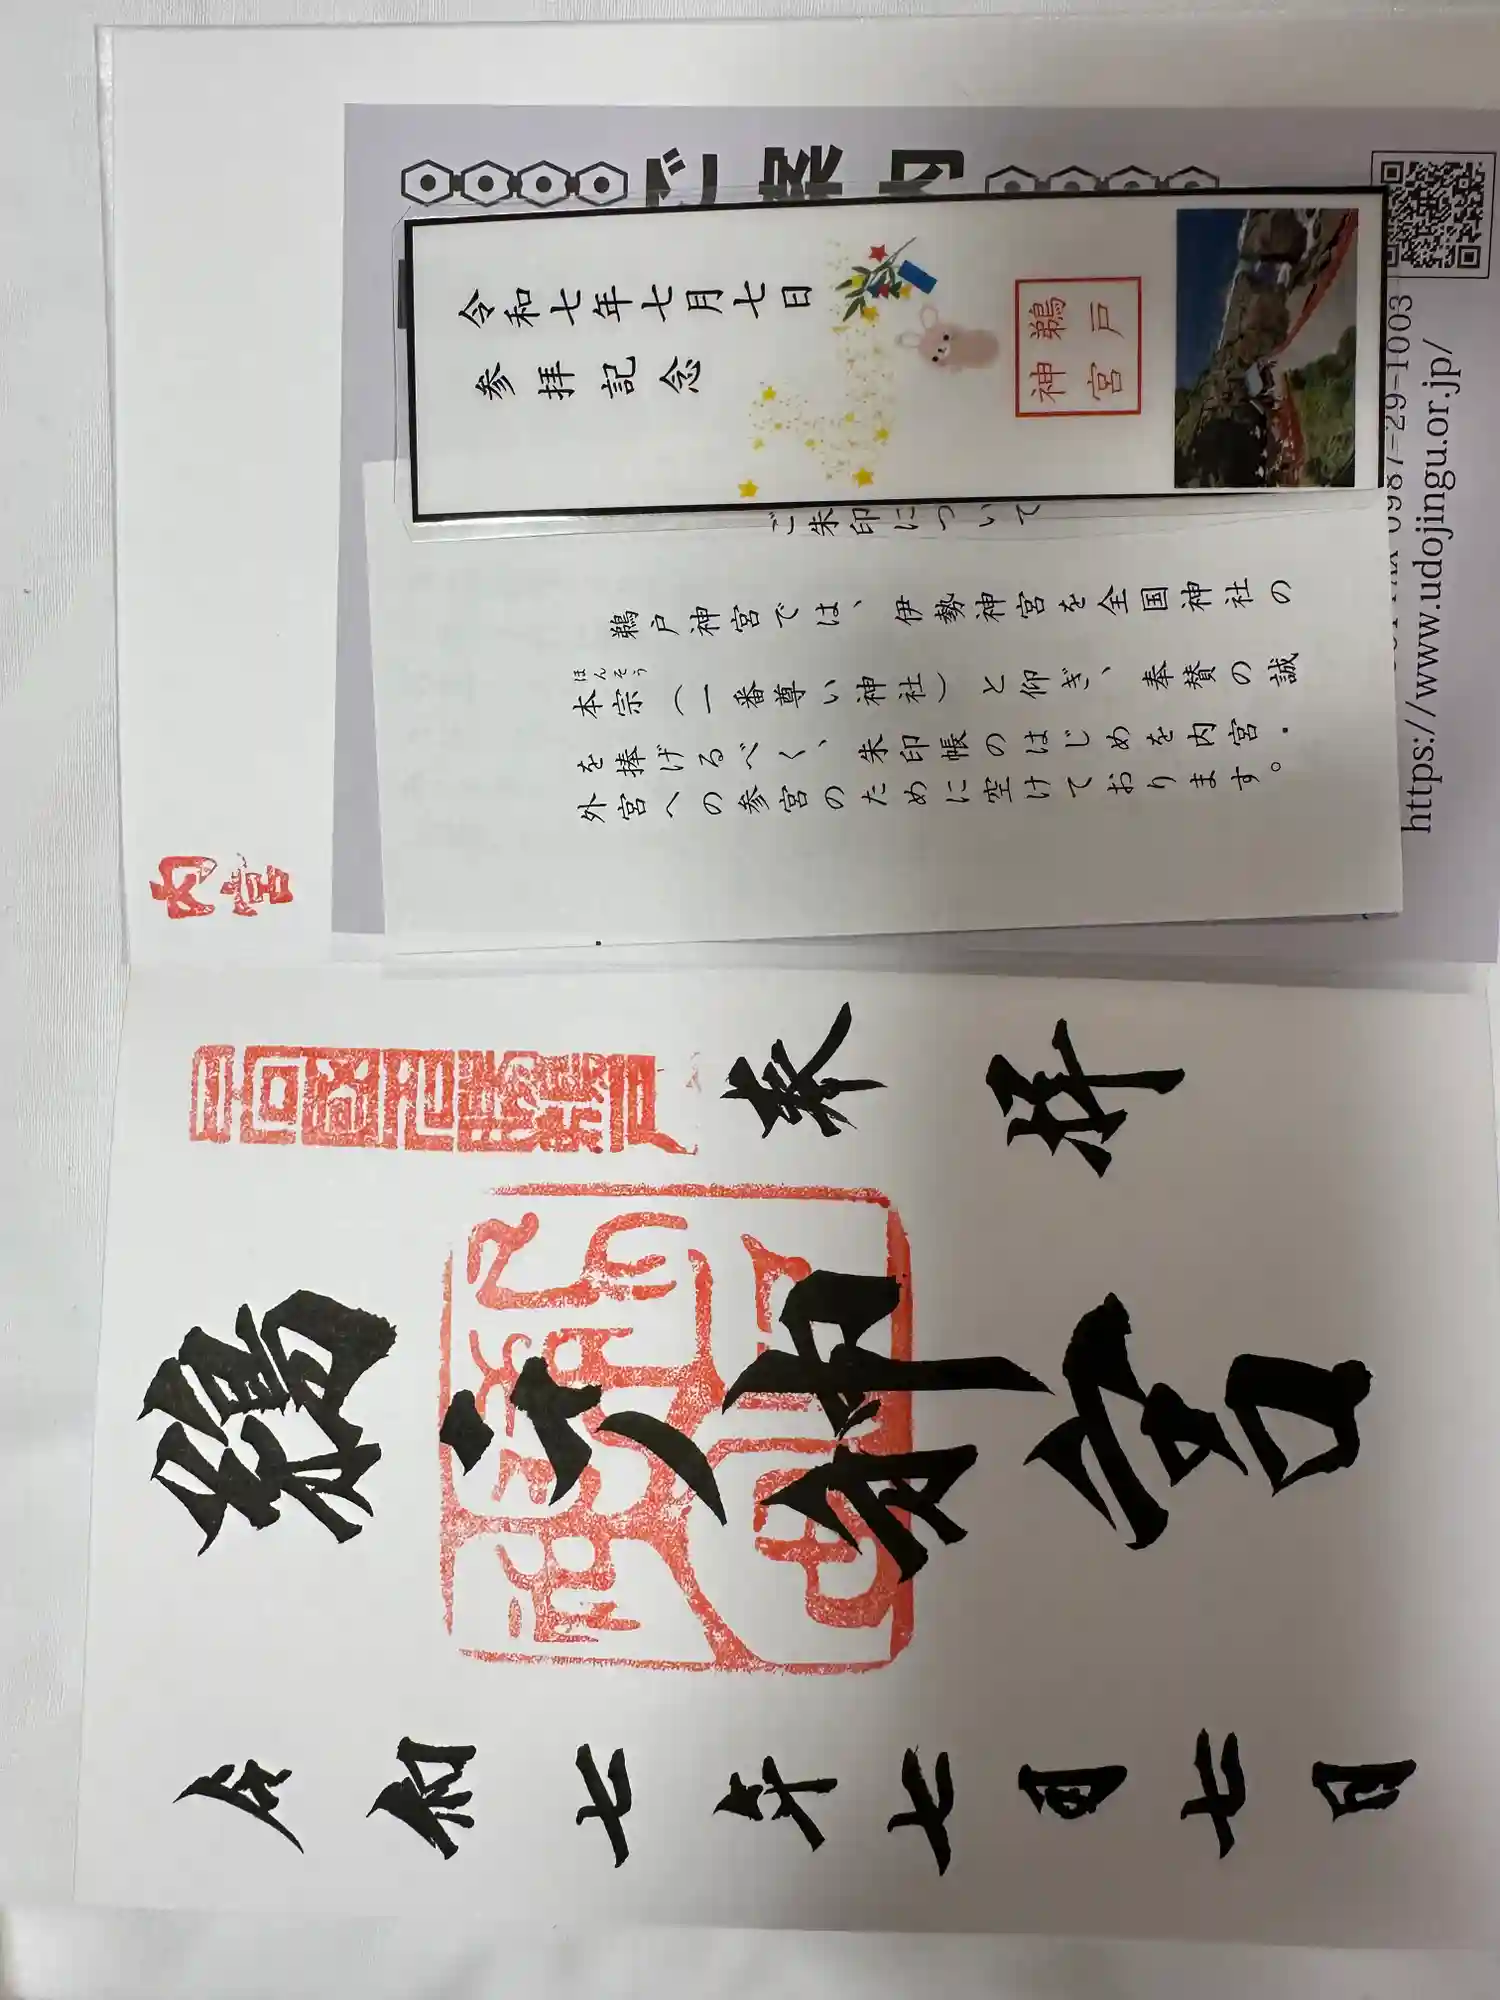 ご案内
令和七年七月七日
参拝記念
鵜戸
神宮
0987-29-1003
https://www.udojingu.or.jp/
ご朱印について
鵜戸神宮では、伊勢神宮を全国神社の
本宗（一番尊い神社）と仰ぎ、奉賛の誠
ほんそう
を捧げるべく、朱印帳のはじめを内宮・
外宮への参宮のために空けております。
内宮
奉拝
鵜戸神宮
令和七年七月七日